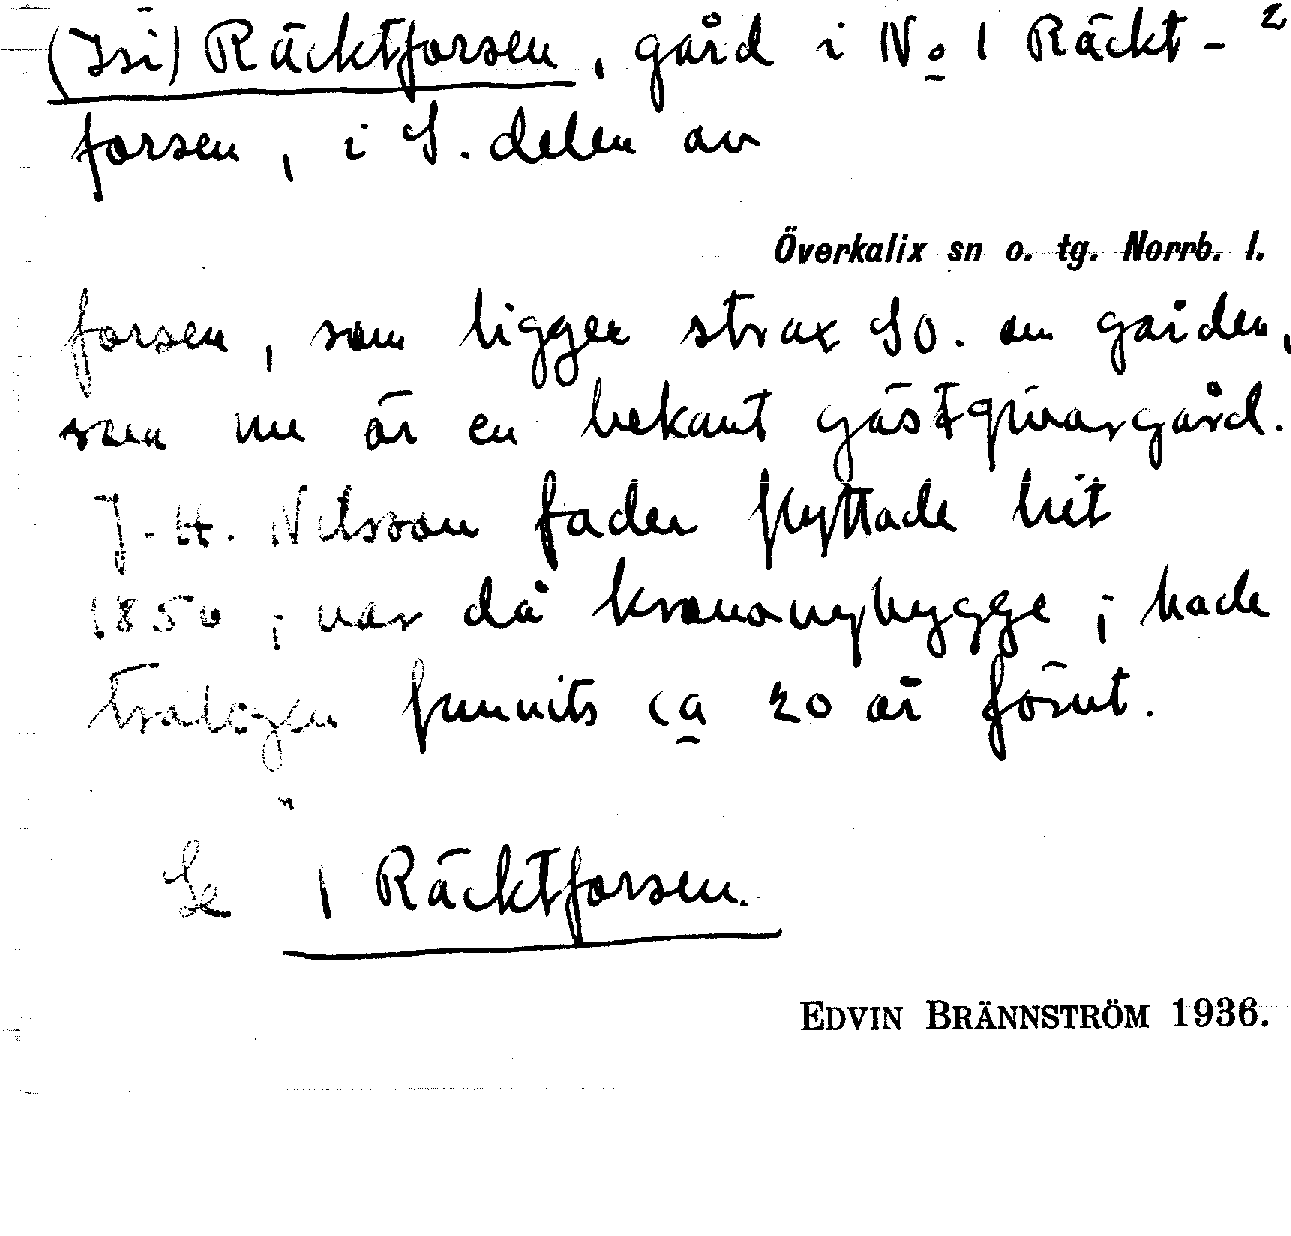 (Isi) Räcktforsen, gård i No 1 Räckt- 2
forsen, i S. delen av
Överkalix sn o. tg. Norrb. l.
forsen, som ligger strax SO. om gården,
som nu är en bekant gästgivargård.
J. H. Nilsson fader flyttade hit
1850; var då krononybygge; hade
troligen funnits ca 20 år förut.
Se 1 Räcktforsen.
EDVIN BRÄNNSTRÖM 1936.